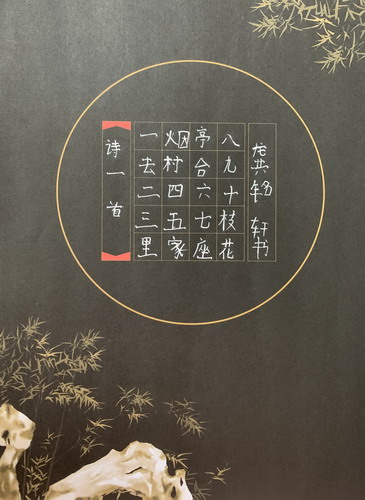 诗一首
一去二三里
烟村四五家
亭合六七座
八九十枝花
龚铭轩书